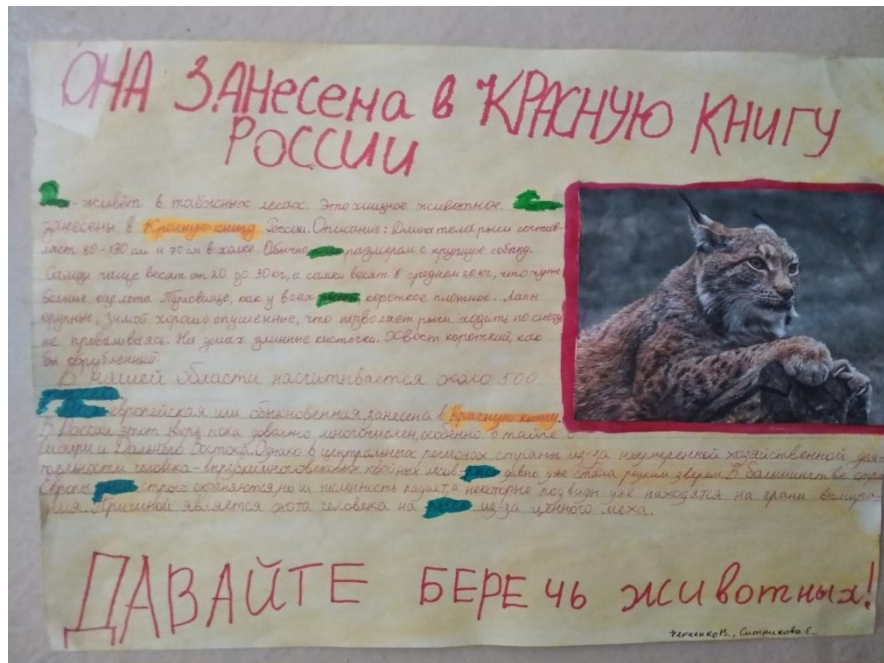 ОНА ЗАНЕСЕНА в КРАСНУЮ КНИГУ
РОССИИ
- живёт в таёжных лесах. Это хищное животное.
занесены в Красную книгу России. Описание: Длина тела рыси состав-
ляет 80-130 см и 70 см в холке. Обычно размером с крупную собаку.
Самцы чаще весят от 20 до 30 кг, а самки весят в среднем 20 кг, что чуть
больше оцелота. Туловище, как у всех рысей, короткое плотное. Лапы
крупные, зимой хорошо опушенные, что позволяет рыси ходить по снегу
не проваливаясь. На ушах длинные кисточки. Хвост короткий, как
бы обрубленный.
В нашей области насчитывается около 500
европейская или обыкновенная, занесена в Красную книгу.
В России этот зверь пока довольно многочислен, особенно в тайге
Сибири и Дальнего Востока. Однако в центральных регионах страны из-за неумеренной хозяйственной дея-
тельности человека - вырубки многовековых хвойных лесов - давно уже стала редким зверем. В большинстве стран
Европы строго охраняются, но их численность падает, а некоторые подвиды уже находятся на грани вымира-
ния. Причиной является охота человека на рысь из-за ценного меха.
ДАВАЙТЕ БЕРЕЧЬ животных!
Ситникова Е.